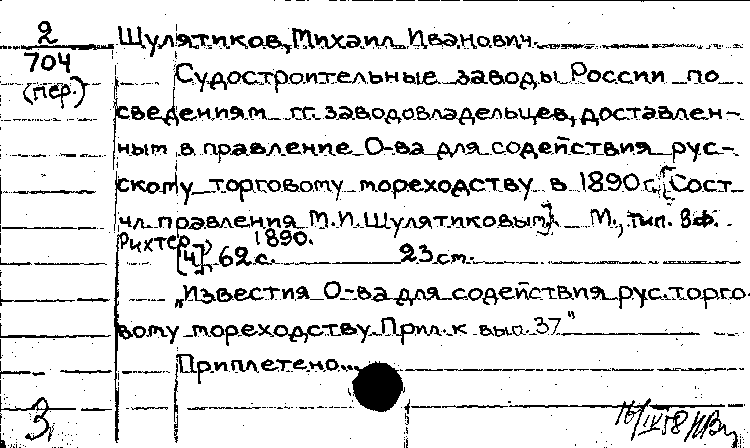 2
704
(пер.)
Шулятиков, Михаил Иванович.
Судостроительные заводы России по
сведениям гг. заводовладельцев, доставлен-
ным в правление О-ва для содействия рус-
скому торговому мореходству в 1890 г. [Сост.
чл. правления М.И. Шулятиковым]. М., тип. В.Ф.
Рихтер, 1890.
[4], 62 с. 23 см.
"Известия О-ва для содействия рус. торго-
вому мореходству. Прил. к вып. 37"
Приплетено...
3
16/IX 58